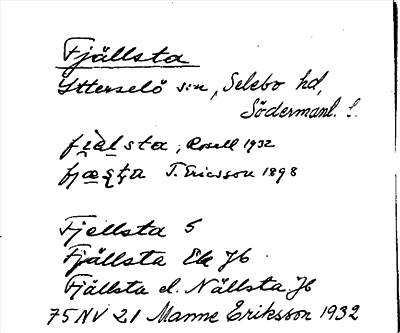 Fjällsta
Ytterselö s:n, Selebo hd,
Södermanl. l.
fi̯àlsta, Rosell 1932
fjæṣṭa T. Ericsson 1898
Fjellsta 5
Fjällsta Ek Jb
Fjällsta el. Nällsta Jb
75 NV 21 Manne Eriksson 1932